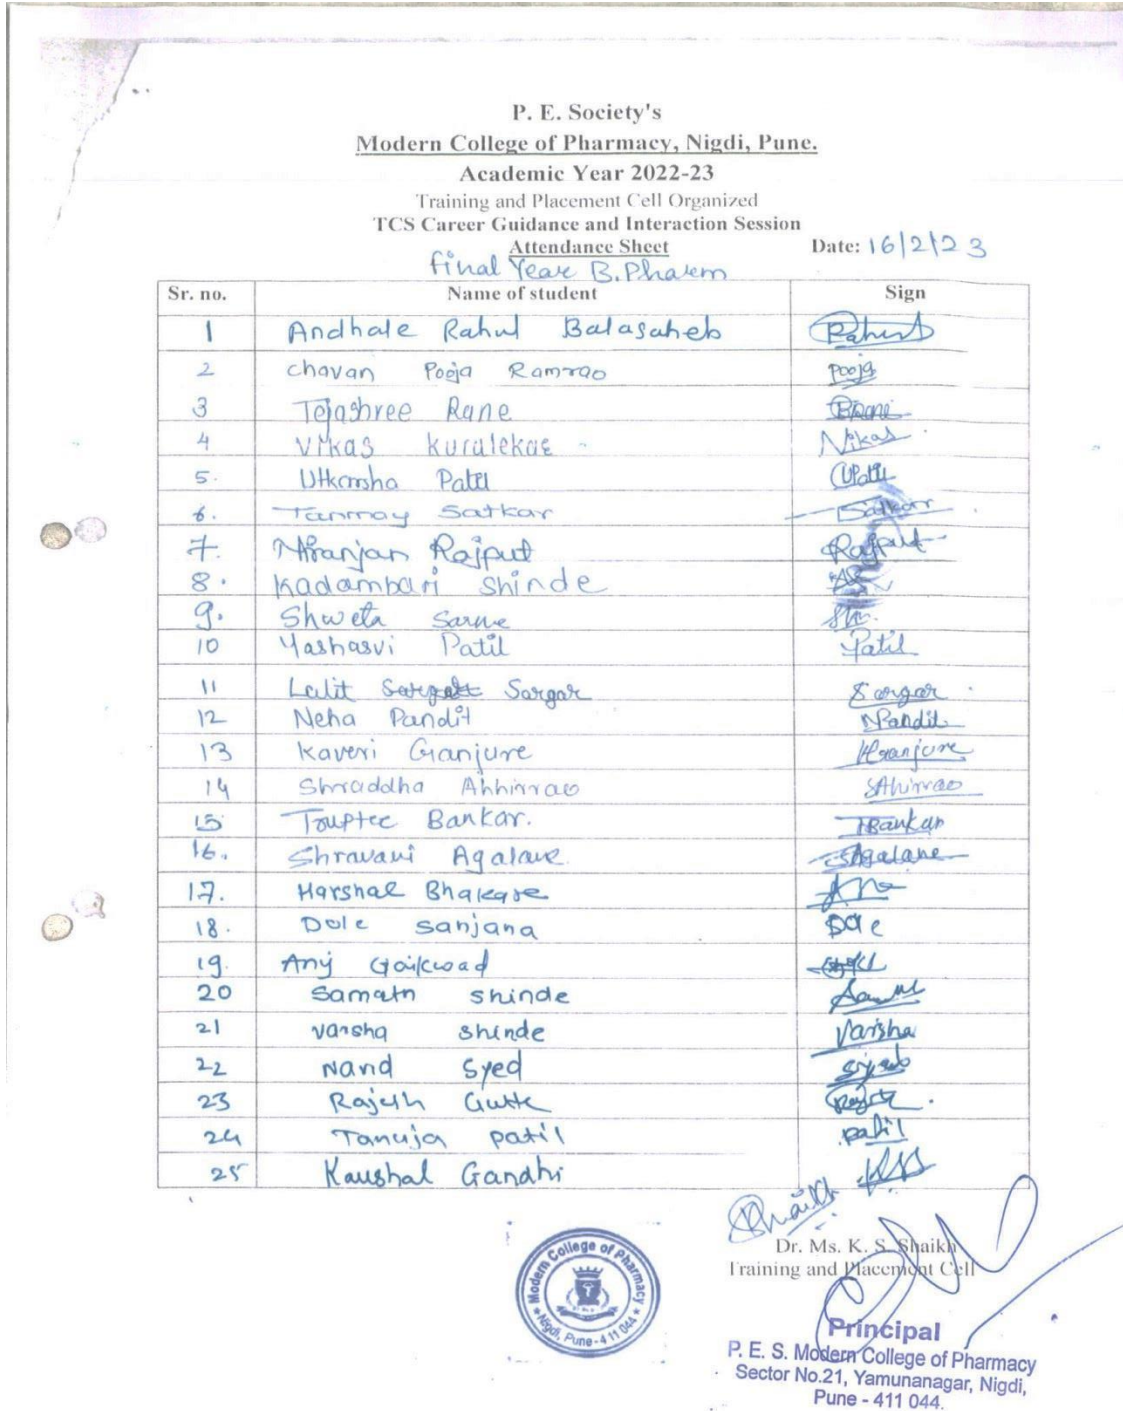 P. E. Society's
Modern College of Pharmacy, Nigdi, Pune.
Academic Year 2022-23
Training and Placement Cell Organized
TCS Career Guidance and Interaction Session
Attendance Sheet Date: 16/2/23
Final Year B.Pharm
Sr. no. Name of student Sign
1 Andhale Rahul Balasaheb Rahul
2 chavan Pooja Ramrao Pooja
3 Tejashree Rane
4 Vikas Kuralekar Vikas
5. Utkarsha Patil UPatil
6. Tanmay Satkar Satkar
7. Niranjan Rajput Rajput
8. Kadambari Shinde
9. Shweta Sarwe
10 Yashasvi Patil Patil
11 Lalit Sargar Sargar
12 Neha Pandit NPandit
13 Kaveri Ganjure Ganjure
14 Shraddha Ahhirrao SAhirrao
15 Truptee Bankar. TBankar
16. Shravani Agalave Agalave
17. Harshal Bhakare
18. Dole Sanjana Dole
19. Anj Gaikwad
20 Samarth shinde
21 varsha shinde Varsha
22 Nand Syed
23 Rajesh Gutte
24 Tanuja patil patil
25 Kaushal Gandhi
Shaikh
Dr. Ms. K. S. Shaikh
Training and Placement Cell
Modern College of Pharmacy
Nigdi, Pune-411 044
Principal
P. E. S. Modern College of Pharmacy
Sector No.21, Yamunanagar, Nigdi,
Pune - 411 044.